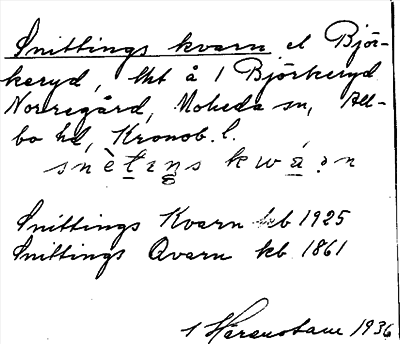 Snittings kvarn el Björ-
keryd, lht å 1 Björkeryd
Norregård, Moheda sn, All-
bo hd, Kronob. l.
snètıŋs kwáṇ
Snittings Kvarn kb 1925
Snittings Qvarn kb 1861
1936